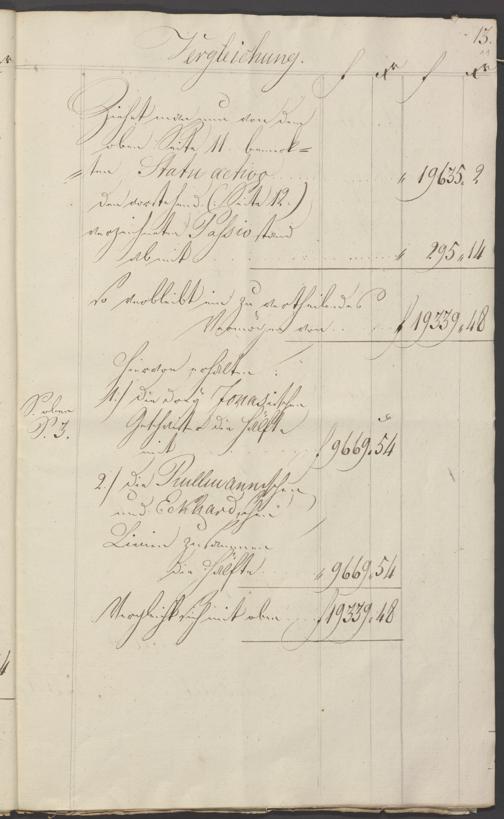 13.
Vergleichung.
f xr f xr
Ziehet man nun von dem
oben Seite 11. bemerk=
ten Statu activo " 19635. 2
den vorstehend (: Seite 12.)
verzeichneten Passiv stand
ab mit " 295. 14
so verbleibt ein zu vertheilendes
Vermögen von f 19339. 48
Hiervon erhalten :
1./ die drey Jonasischen
S. oben
S. 3.
Geschwister die Hälfte
mit f 9669. 54
2./ die Rullmannischen
und Eckhardschen
Linien zusammen
die Hälfte " 9669. 54
Vergleicht sich mit oben f 19339. 48